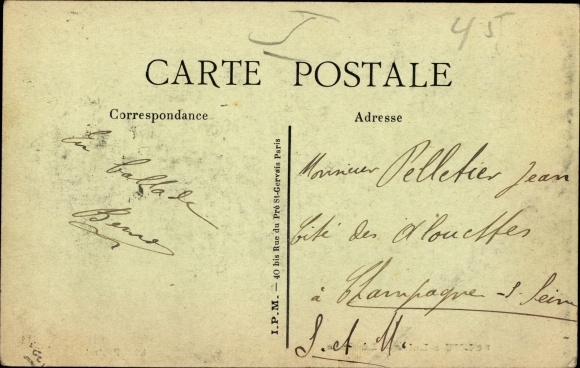 I
45
CARTE POSTALE
Correspondance
Adresse
En
ballade
I.P.M. — 40 bis Rue du Pré St-Gervais Paris
Monsieur Pelletier Jean
Cité des Alouettes
à Champagne-s-Seine
S. et M.